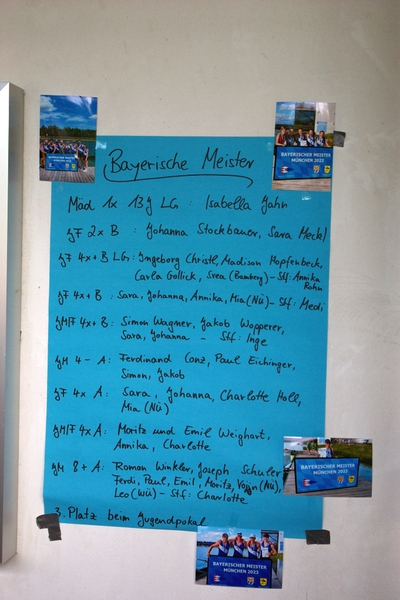 Bayerische Meister
Mäd 1x 13J LG : Isabella Jahn
JF 2x B : Johanna Stockbauer, Sara Meckl
JF 4x+ B LG : Ingeborg Christl, Madison Hopfenbeck,
Carla Gollick, Svea (Bamberg) - Stf: Annika
Rohn
JF 4x+ B : Sara, Johanna, Annika, Mia (Nü) - Stf: Medi
JM/F 4x+ B : Simon Wagner, Jakob Wopperer,
Sara, Johanna - Stf: Inge
JM 4 - A : Ferdinand Conz, Paul Eichinger,
Simon, Jakob
JF 4x A : Sara, Johanna, Charlotte Holl,
Mia (Nü)
JM/F 4x A : Moritz und Emil Weighart,
Annika, Charlotte
JM 8+ A : Roman Winkler, Joseph Schuler
Ferdi, Paul, Emil, Moritz, (Nü),
Leo (Wü) - Stf: Charlotte
3. Platz beim Jugendpokal
BAYERISCHER MEISTER
MÜNCHEN 2023
BAYERISCHER MEISTER
MÜNCHEN 2023
BAYERISCHER MEISTER
MÜNCHEN 2023